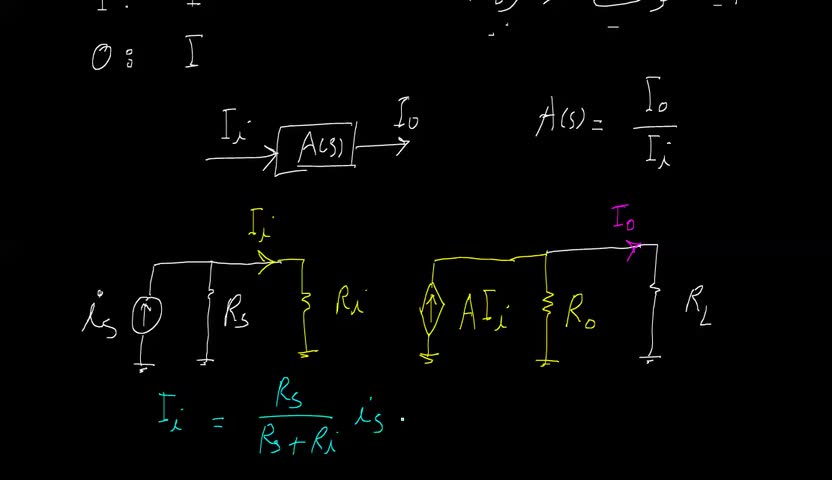 O: I
I_i A(s) I_o
A(s) = I_o / I_i
I_i I_o
i_s R_s R_i A I_i R_o R_L
I_i = R_s / (R_s + R_i) i_s .